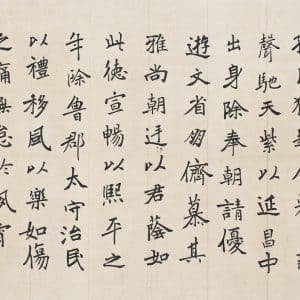 聲馳天紫以延昌中
出身除奉朝請優
遊文省朋儕慕其
雅尚朝廷以君蔭如
此德宣暢以熙平之
年除魯郡太守治民
以禮移風以樂如傷
之痛無怠於夙宵